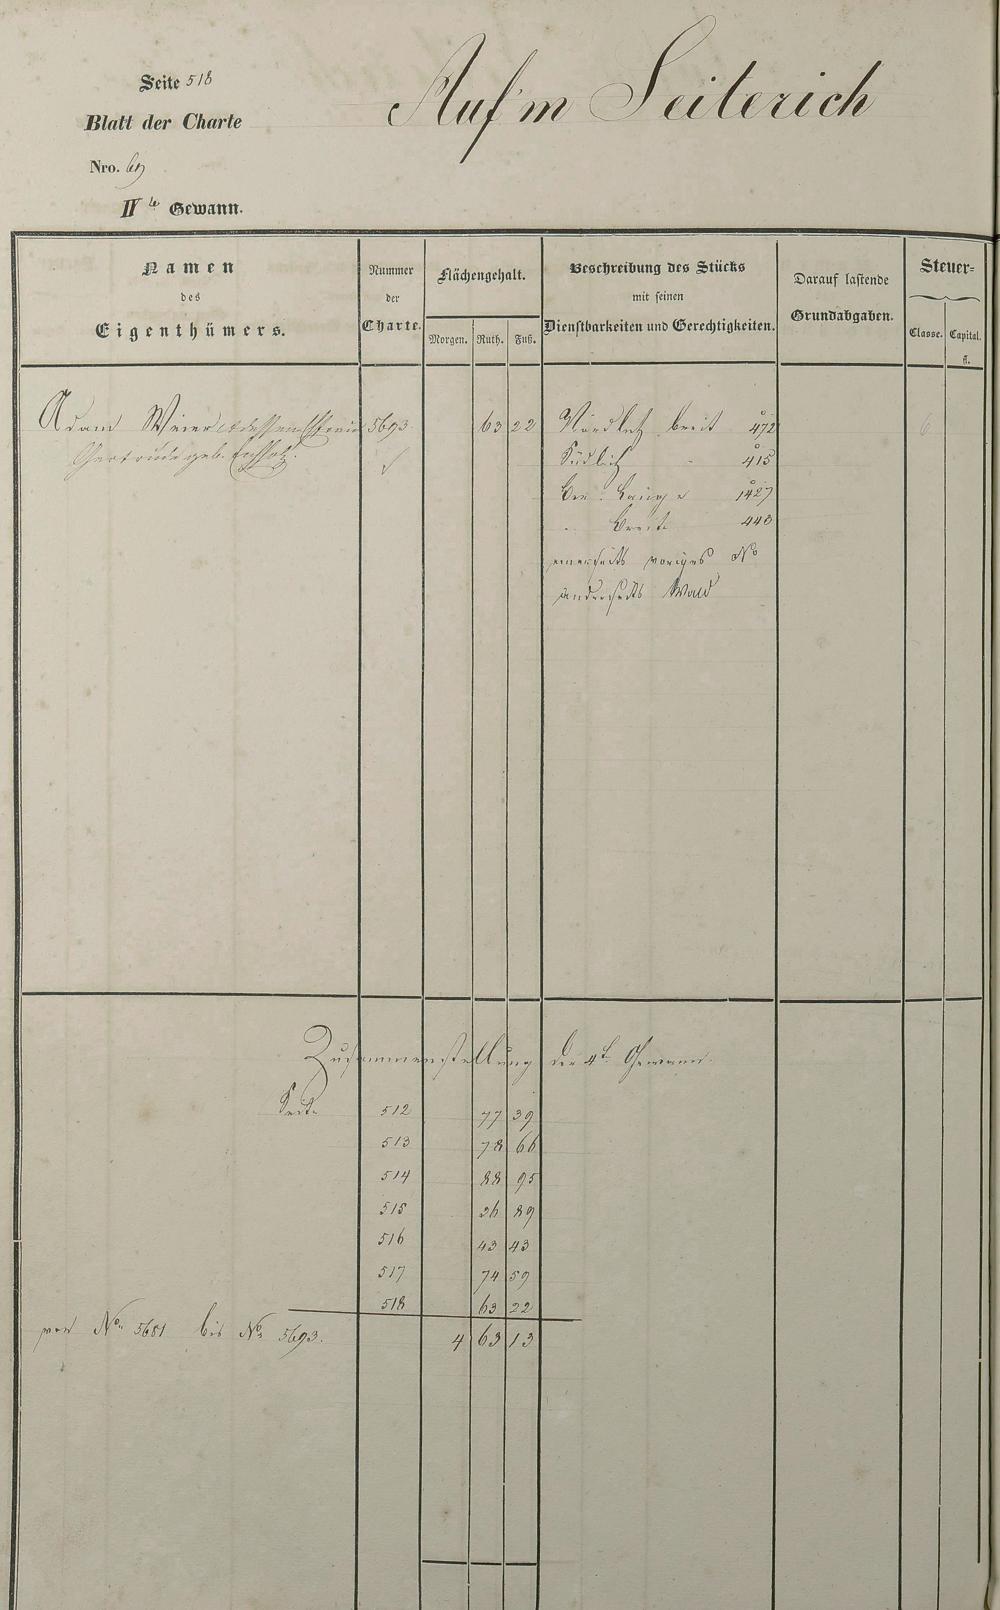 Seite 518
Auf'm Seiterich
Blatt der Charte
Nro. 69
IV te Gewann.
Namen
des
Eigenthümers.
Nummer
der
Charte.
Flächengehalt.
Morgen. Ruth. Fuß.
Beschreibung des Stücks
mit seinen
Dienstbarkeiten und Gerechtigkeiten.
Darauf lastende
Grundabgaben.
Steuer-
Classe. Capital.
fl.
Adam Weier dessen 5693 63 22 Nördlich breit 472 6
Gertrude geb. Südlich - 415
Ber. Länge 1427
" Breite 443
einerseits voriges No
anderseits Wald
Zusammenstellung der 4t. Gewann.
Seite 512 77 39
513 78 66
514 88 95
515 26 89
516 43 43
517 74 59
518 63 22
von No. 5681 bis No. 5693. 4 63 13